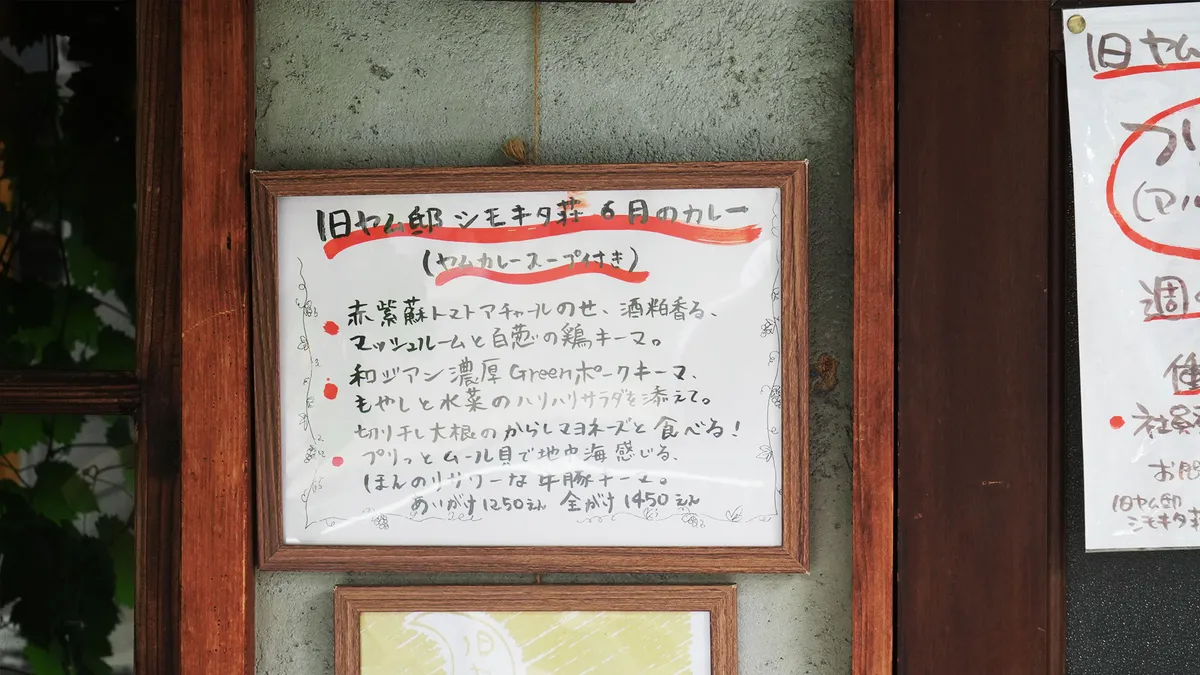 旧ヤム邸 シモキタ荘 6月のカレー
(ヤムカレースープ付き)
赤紫蘇トマトアチャールのせ、酒粕香る、
マッシュルームと白葱の鶏キーマ。
和ジアン濃厚Greenポークキーマ、
もやしと水菜のハリハリサラダを添えて。
切り干し大根のからしマヨネーズと食べる!
プリっとムール貝で地中海感じる、
ほんのりサワーな牛豚キーマ。
あいがけ1250えん 全がけ1450えん
旧ヤム
フリ
(マル
週
働
社員
お問
旧ヤム邸
シモキタ
旧